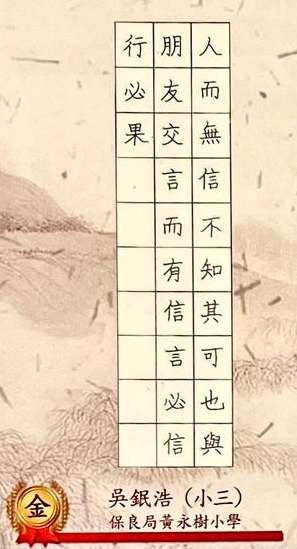 人而無信不知其可也與
朋友交言而有信言必信
行必果
金
吳鈱浩（小三）
保良局黃永樹小學